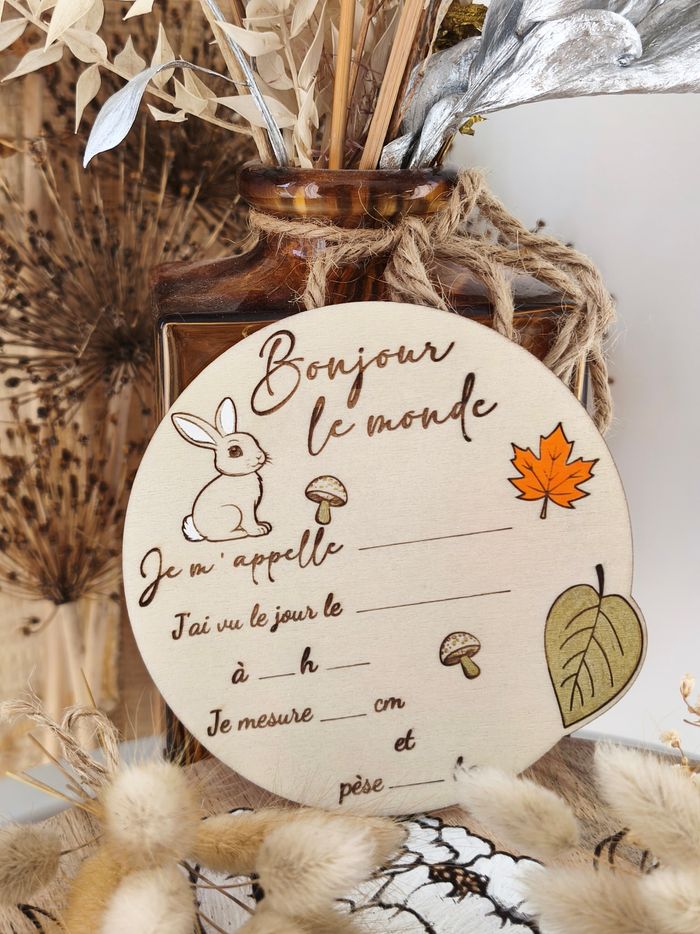 Bonjour
le monde
Je m'appelle ________
J'ai vu le jour le ________
à ___ h ___
Je mesure ____ cm
et
pèse ____